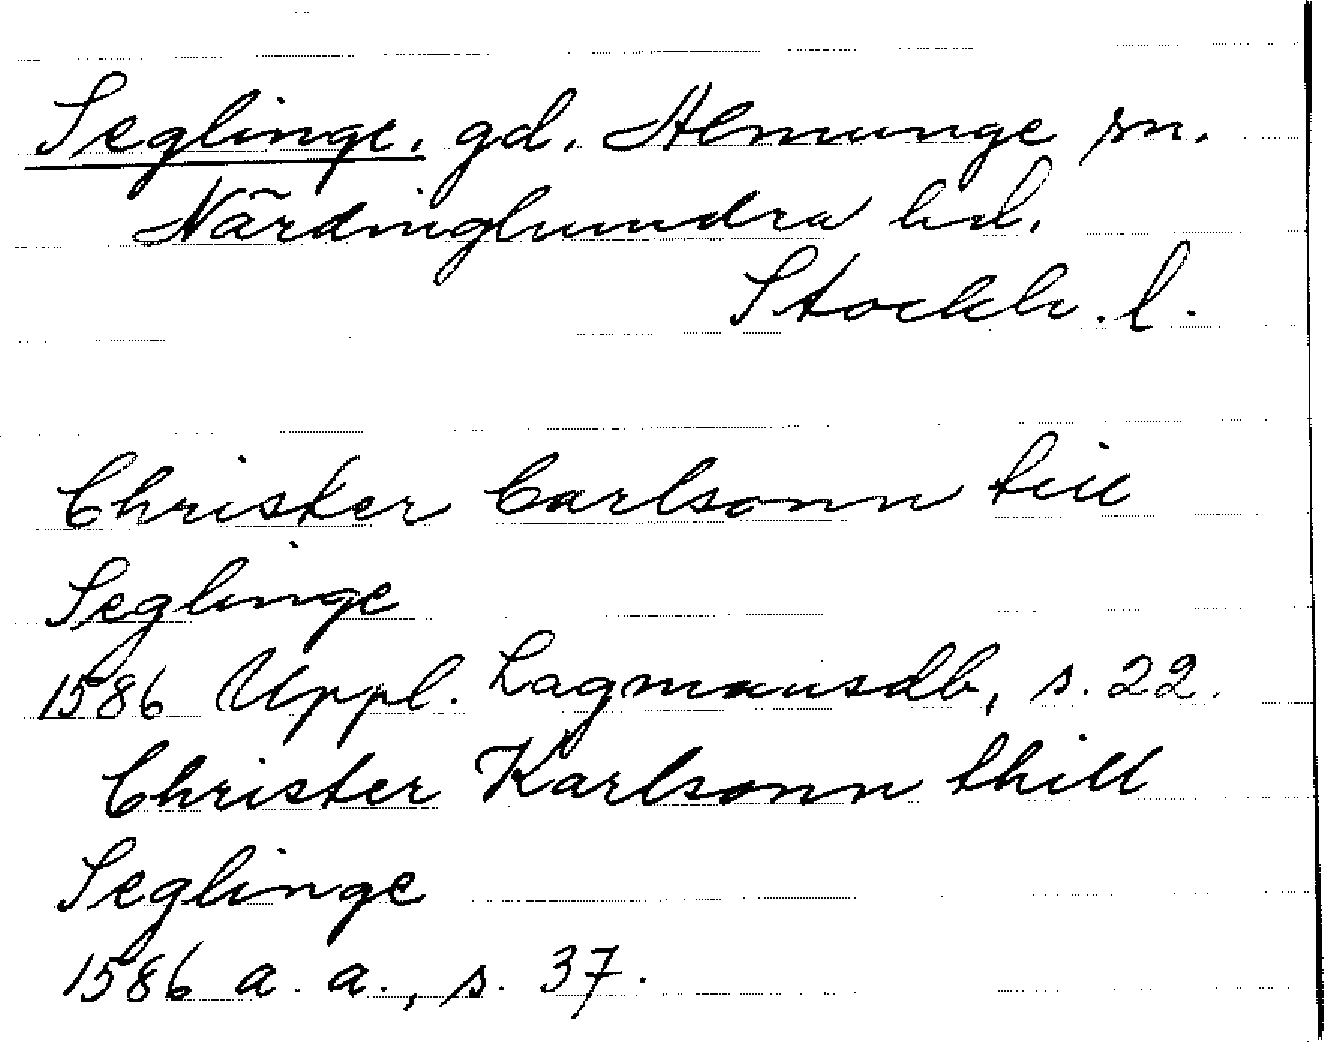 Seglinge. gd. Almunge sn.
Närdinghundra hd.
Stockh. l.
Christer Carlsonn till
Seglinge
1586 Uppl. Lagmansdb, s. 22.
Christer Karlsonn thill
Seglinge
1586 a. a., s. 37.